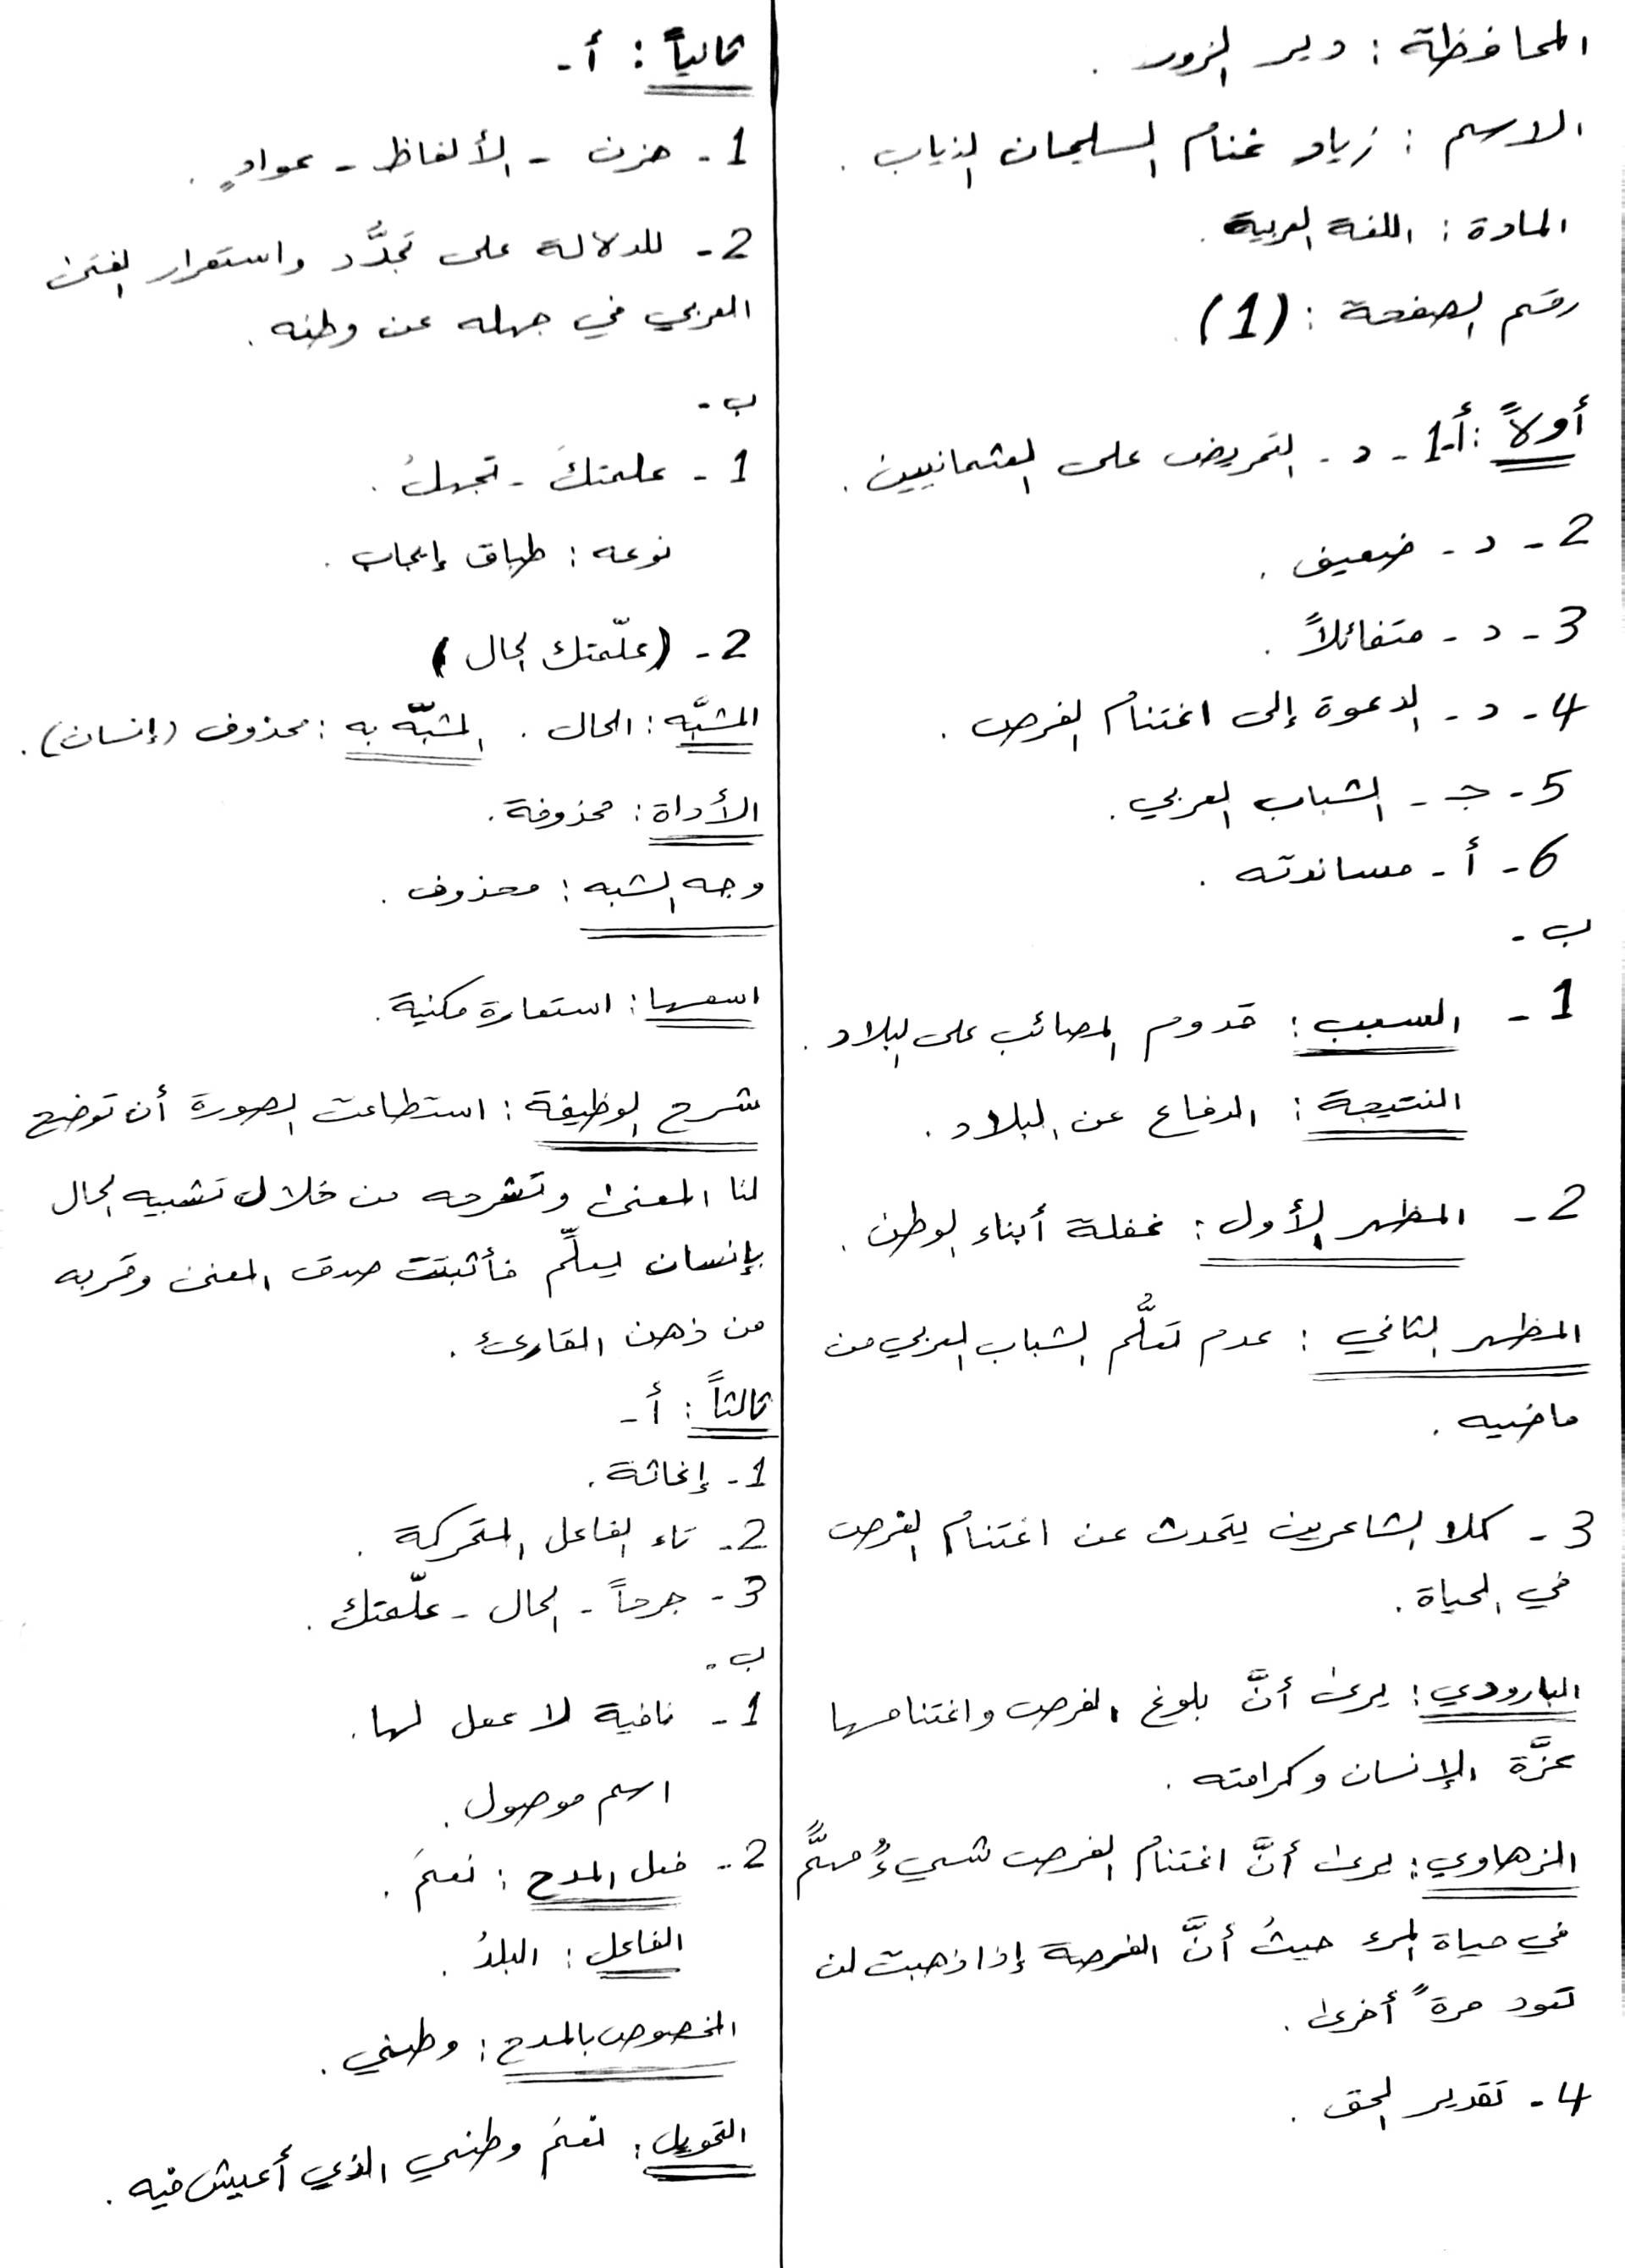 المحافظة : دير الزور .
الاسم : زياد غنام السليمان الذياب .
المادة : اللغة العربية .
رقم الصفحة : (1) .
أولاً : أ-1 - د - التحريض على العثمانيين .
2 - د - ضعيف .
3 - د - متفائلاً .
4 - د - الدعوة إلى اغتنام الفرص .
5 - جـ - الشباب العربي .
6 - أ - مساندته .
ب -
1 - السبب : قدوم المصائب على البلاد .
النتيجة : الدفاع عن البلاد .
2 - المظهر الأول : غفلة أبناء الوطن .
المظهر الثاني : عدم تعلُّم الشباب العربي من
ماضيه .
3 - كلا الشاعرين يتحدث عن اغتنام الفرص
في الحياة .
البارودي : يرى أنَّ بلوغ الفرص واغتنامها
عزَّة الإنسان وكرامته .
الزهاوي : يرى أنَّ اغتنام الفرص شيءٌ مهمٌّ
في حياة المرء حيثُ أنَّ الفرصة إذا ذهبت لن
تعود مرةً أخرى .
4 - تقدير الحق .
ثانياً : أ -
1 - حزن - الألفاظ - عوادٍ .
2 - للدلالة على تجدُّد واستقرار الفتى
العربي في جهله عن وطنه .
ب -
1 - علمتكَ - تجهلُ .
نوعه : طباق إيجاب .
2 - (علّمتك الحال)
المشبَّه : الحال . المشبّه به : محذوف (إنسان) .
الأداة : محذوفة .
وجه الشبه : محذوف .
اسمها : استعارة مكنية .
شرح الوظيفة : استطاعت الصورة أن توضح
لنا المعنى وتشرحه من خلال تشبيه الحال
بإنسان يعلِّم فأثبتت صدق المعنى وقربه
من ذهن القارئ .
ثالثاً : أ -
1 - إغاثة .
2 - تاء الفاعل المتحركة .
3 - جرحاً - الحال - علّمتك .
ب -
1 - نافية لا عمل لها .
اسم موصول .
2 - فعل المدح : نعمَ .
الفاعل : البلدُ .
المخصوص بالمدح : وطني .
التحويل : نعمَ وطني الذي أعيش فيه .